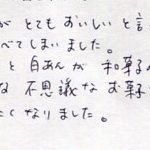 が とても おいしい と 言
べて しまい ました。
と 白あん が 和菓子
な 不思議 な お菓
くなり ました。